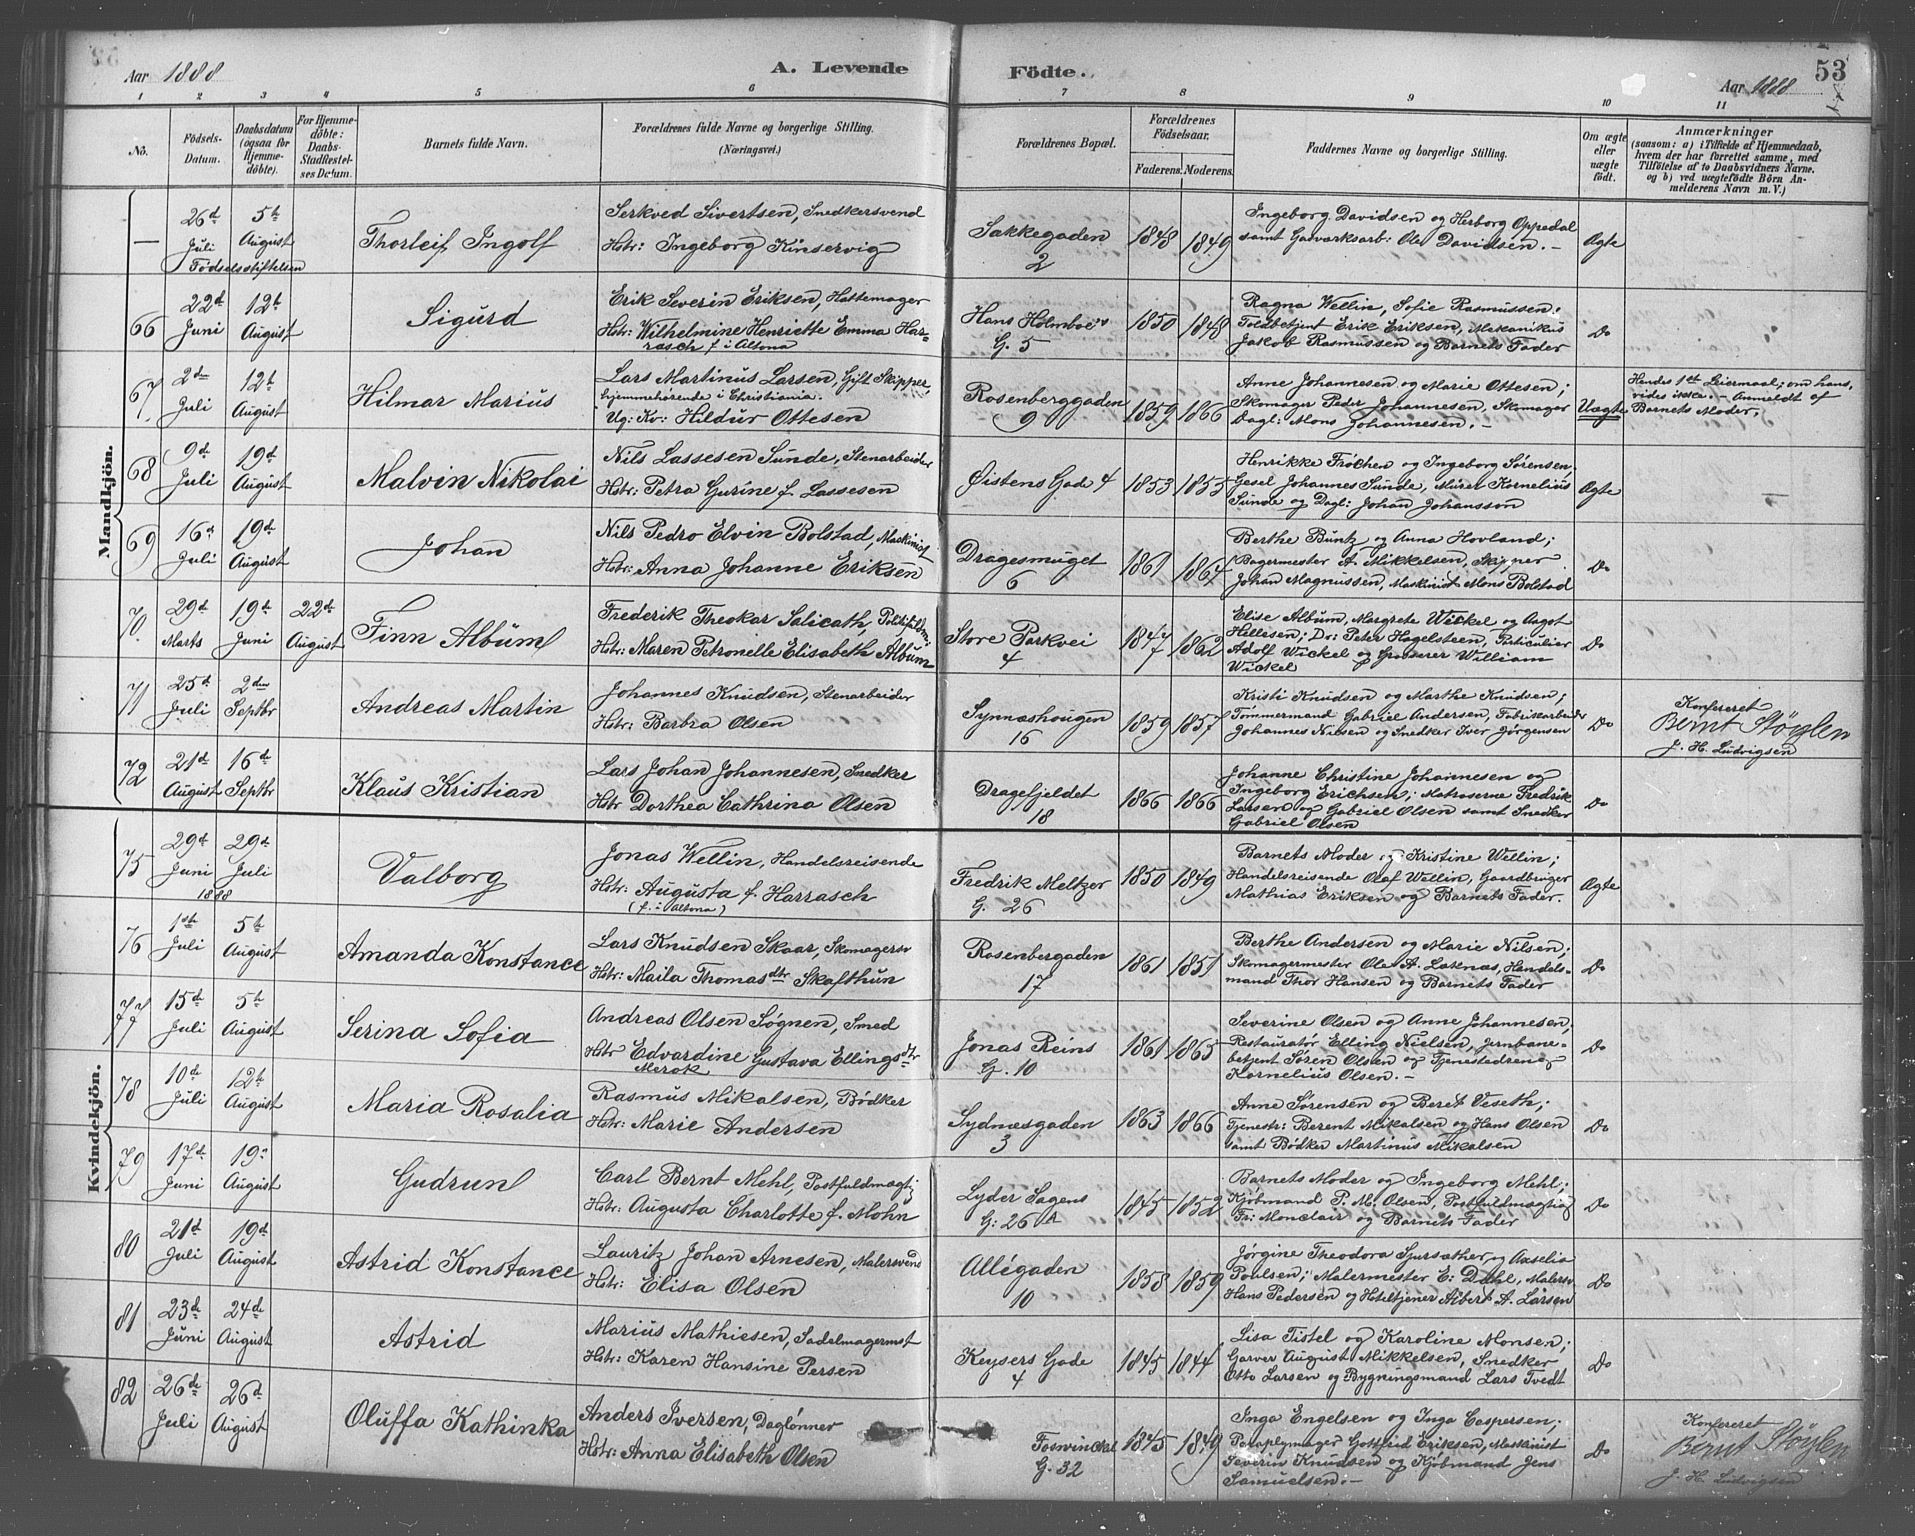 Aar 1888
A. Levende
Födte.
53
Aar 1888
1 2 3 4 5 6 7 8 9 10 11
No.
Födsels-Datum.
Daabsdatum (ogsaa for Hjemme-döbte).
For Hjemme-döbte: Daabs-Stadfæstel-ses Datum.
Barnets fulde Navn.
Forældrenes fulde Navne og borgerlige Stilling. (Næringsvei.)
Forældrenes Bopæl.
Forældrenes Födselsaar.
Faderens. Moderens.
Faddernes Navne og borgerlige Stilling.
Om ægte eller uægte födt.
Anmærkninger
(saasom: a) i Tilfælde af Hjemmedaab,
hvem der har forrettet samme, med
Tilföielse af to Daabsvidners Navne.
og b) ved uægtefödte Börn An-
melderens Navn m. V.)
Mandkjön.
— 26d Juli 5te August Thorleif Ingolf
Födselsstiftelsen
Serkved Sivertsen, Snedkersvend
Hstr: Ingeborg Kinservig
Sakkegaden 2 1848 1849
Ingeborg Davidsen og Herborg Oppedal
samt Gasværksarb: Ole Davidsen. —
Ægte
66 22d Juni 12te August Sigurd
Erik Severin Eriksen, Hattemager
Hstr: Wilhelmine Henriette Emma Har-
rasch f. i Altona
Hans Holmboe's G. 5 1850 1848
Ragna Wellin, Sofie Rasmussen;
Toldbetjent Erik Eriksen, Mekanikus
Jakob Rasmussen og Barnets Fader
Do
67 2den Juli 12te August Hilmar Marius
Lars Martinus Larsen, Gift Skipper,
hjemmehörende i Christiania.
Ug: Kv: Hildur Ottesen
Rosenberggaden 9 1859 1866
Anne Johannesen og Marie Ottesen;
Skomager Peder Johannesen, Skomager
Dagl: Mons Johannesen. —
Uægte
Hendes 1ste Leiermaal; om hans,
vides ikke. — Anmeldt af
Barnets Moder.
68 9de Juli 19de August Malvin Nikolai
Nils Lassesen Sunde, Stenarbeider
Hstr: Petra Gurine f. Lassesen
Øistens Gade 4 1853 1855
Henrikke Fröchen og Ingeborg Sørensen
Gesel Johannes Sunde, Mürer Kornelius
Sunde og Dagl: Johan Johansson
Ægte
69 16de Juli 19de August Johan
Nils Pedro Elvin Bolstad, Maskinist
Hstr: Anna Johanne Eriksen
Dragesmuget 6 1861 1864
Berthe Buntz og Anna Hovland;
Bagermester A. Mikkelsen, Skipper
Johan Magnussen, Maskinist Mons Bolstad
Do
70 29de Marts 19de Juni 22de August Finn Album
Frederik Theokar Salicath, Politifuldm:
Hstr: Maren Petronelle Elisabeth Album
Store Parkvei 4 1847 1862
Elise Album, Margrete Wickel og Aagot
Hillesen; Dr: Peter Hagelsteen, Particulier
Adolf Wickel og Grosserer William
Wickel
Do
71 25de Juli 2den Septbr Andreas Martin
Johannes Knudsen, Stenarbeider
Hstr: Barbra Olsen
Synnæshougen 16 1859 1857
Kristi Knudsen og Marthe Knudsen;
Tömmermand Gabriel Andersen, Fabrikarbeider
Johannes Nilsen og Snedker Iver Jörgensen
Do
Konfereret
Bernt Støylen
J. H. Ludvigsen
72 21de August 16de Septbr Klaus Kristian
Lars Johan Johannesen, Snedker
Hstr Dorthea Cathrina Olsen
Dragefjeldet 18 1866 1866
Johanne Christine Johannesen og
Ingeborg Erichsen; Matroserne Fredrik
Larsen og Gabriel Olsen samt Snedker
Gabriel Olsen
Do
Kvindekjön.
75 29de Juni 1888 29de Juli Valborg
Jonas Wellin, Handelsreisende
Hstr: Augusta f. Harrasch
(f. i Altona)
Fredrik Meltzer G. 26 1850 1849
Barnets Moder og Kristine Wellin;
Handelsreisende Olaf Wellin, Gaardbruger
Mathias Eriksen og Barnets Fader.
Ægte
76 1ste Juli 5te August Amanda Konstance
Lars Knudsen Skaar, Skomagersv
Hstr: Maila Thomasdtr Skafthun
Rosenbergaden 17 1861 1851
Berthe Andersen og Marie Nilsen;
Skomagermester Ole A. Løknæs, Handels-
mand Thor Hansen og Barnets Fader
Do
77 15de Juli 5te August Serina Sofia
Andreas Olsen Søgnen, Smed
Hstr Edvardine Gustava Ellingsdtr
Merok
Jonas Reins G. 10 1861 1865
Severine Olsen og Anne Johannesen;
Restauratør Elling Nielsen, Jernbane-
betjent Søren Olsen og Tjenestedreng
Kornelius Olsen. —
Do
78 10de Juli 12te August Maria Rosalia
Rasmus Mikalsen, Bödker
Hstr: Marie Andersen
Sydnæsgaden 3 1863 1866
Anne Sørensen og Beret Veseth;
Tjenestr: Berent Mikalsen og Hans Olsen
samt Bödker Martinus Mikalsen
Do
79 17de Juni 19de August Gudrun
Carl Bernt Mehl, Postfuldmægtig
Hstr: Augusta Charlotte f. Mohn
Lyder Sagens G: 26 A 1845 1852
Barnets Moder og Ingeborg Mehl;
Kjöbmand P. M. Olsen, Postfuldmægtig
Fr: Monclair og Barnets Fader
Do
80 21de Juli 19de August Astrid Konstance
Lauritz Johan Arnesen, Malersvend
Hstr: Elisa Olsen
Allégaden 10 1858 1859
Jørgine Theodora Sjursæther og Axelia
Poulsen; Malermester E: Dahl, Malersv
Hans Pedersen og Hoteltjener Albert A. Larsen
Do
81 23de Juni 24de August Astrid
Marius Mathiesen, Sadelmagermst
Hstr: Karen Hansine Persen
Keysers Gade 4 1845 1844
Lisa Tistel og Karoline Monsen;
Garver August Mikkelsen, Snedker
Otto Larsen og Bygningsmand Lars Tvedt
Do
82 26de Juli 26de August Oluffa Kathinka
Anders Iversen, Daglønner
Hstr: Anna Elisabeth Olsen
Foswinckel G. 32 1845 1849
Inga Engelsen og Inga Caspersen;
Paraplymager Gottfried Eriksen, Maskinist
Severin Knudsen og Kjöbmand Jens
Samuelsen. —
Do
Konfereret
Bernt Støylen
J. H. Ludvigsen